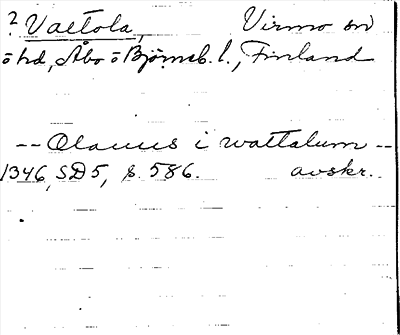 ? Valtola, Virmo sn
ö hd, Åbo ö Björneb. l., Finland
-- Olauus i wattalum --
1346, SD5, s. 586. avskr.